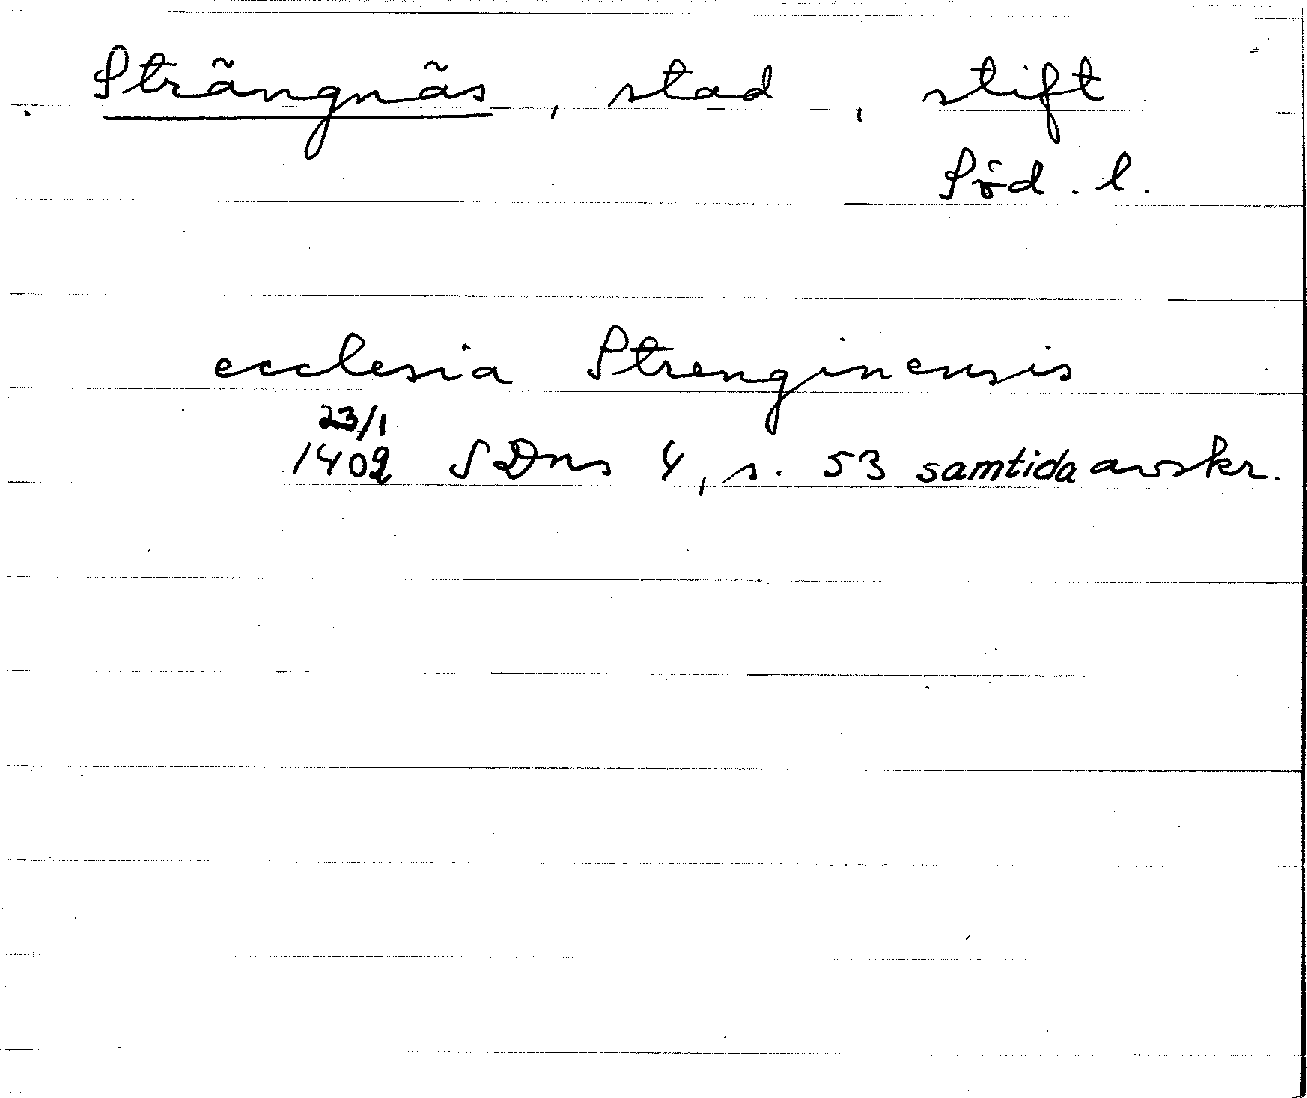 Strängnäs, stad, stift
Söd. l.
ecclesia Strenginensis
23/1
1402 SDns 4, s. 53 samtida avskr.